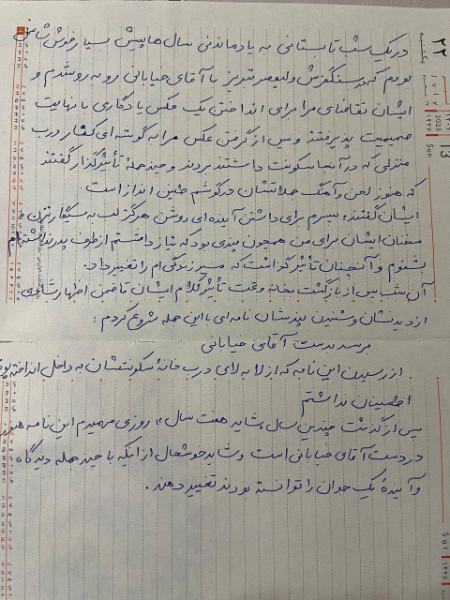 در یک شب تابستانی به یادماندنی سال ها پیش بسیار خوش شانس
بودم که در سنگفرش ولیعصر تبریز با آقای خیابانی رو به رو شدم و
ایشان تقاضای مرا برای انداختن یک عکس یادگاری با نهایت
صمیمیت پذیرفتند و پس از گرفتن عکس مرا به گوشه ای کنار درب
منزلی که در آنجا سکونت داشتند بردند و چند جملهٔ تأثیرگذار گفتند
که هنوز لحن و آهنگ جملاتشان در گوشم طنین انداز است.
ایشان گفتند: پسرم برای داشتن آینده ای روشن هرگز لب به سیگار نزن و
سخنان ایشان برای من همچون پندی بود که نیاز داشتم از طرف پدرنداشته ام
بشنوم و آنچنان تأثیر گذاشت که مسیر زندگی ام را تغییر داد.
آن شب پس از بازگشت به خانه و تحت تأثیر کلام ایشان تا ضمن اظهار شادی
از دیدنشان و شنیدن پندشان نامه ای با این جمله شروع کردم:
برسد بدست آقای خیابانی
از رسیدن این نامه که از لا به لای درب خانهٔ سکونتشان به داخل انداخته بودم
اطمینان نداشتم
پس از گذشت چندین سال، شاید هفت سال، روزی فهمیدم این نامه هنوز
در دست آقای خیابانی است و شاید خوشحال از اینکه با چند جمله دیدگاه
و آیندهٔ یک جوان را توانسته بودند تغییر دهند.
۲۲
یکشنبه
2025
۱۴۴۷
Sun
13
Sat
۱۴۴۷